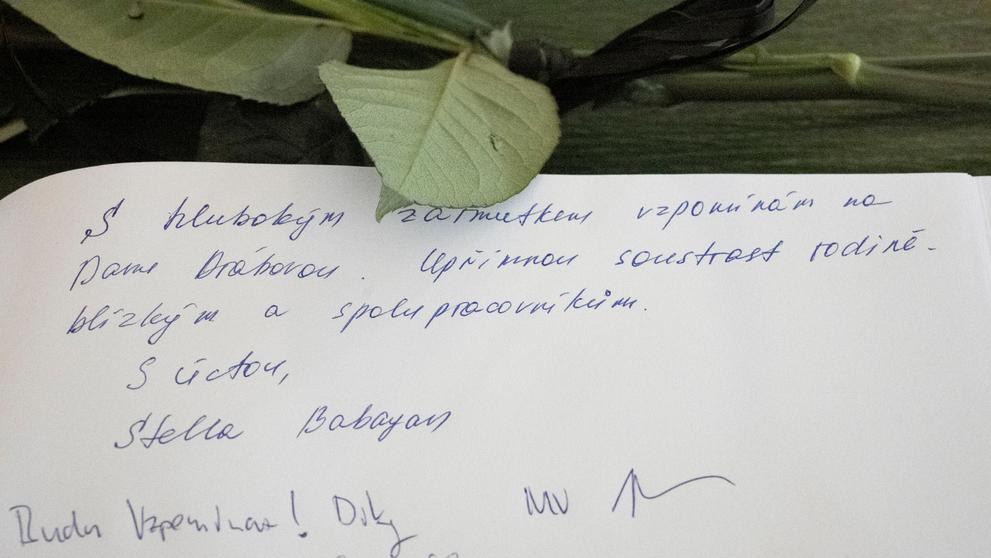 S hlubokým zármutkem vzpomínám na
Danu Drábovou. Upřímnou soustrast rodině.
blízkým a spolupracovníkům.
S úctou,
Stella Babayan
Budu Vzpomínat! Díky